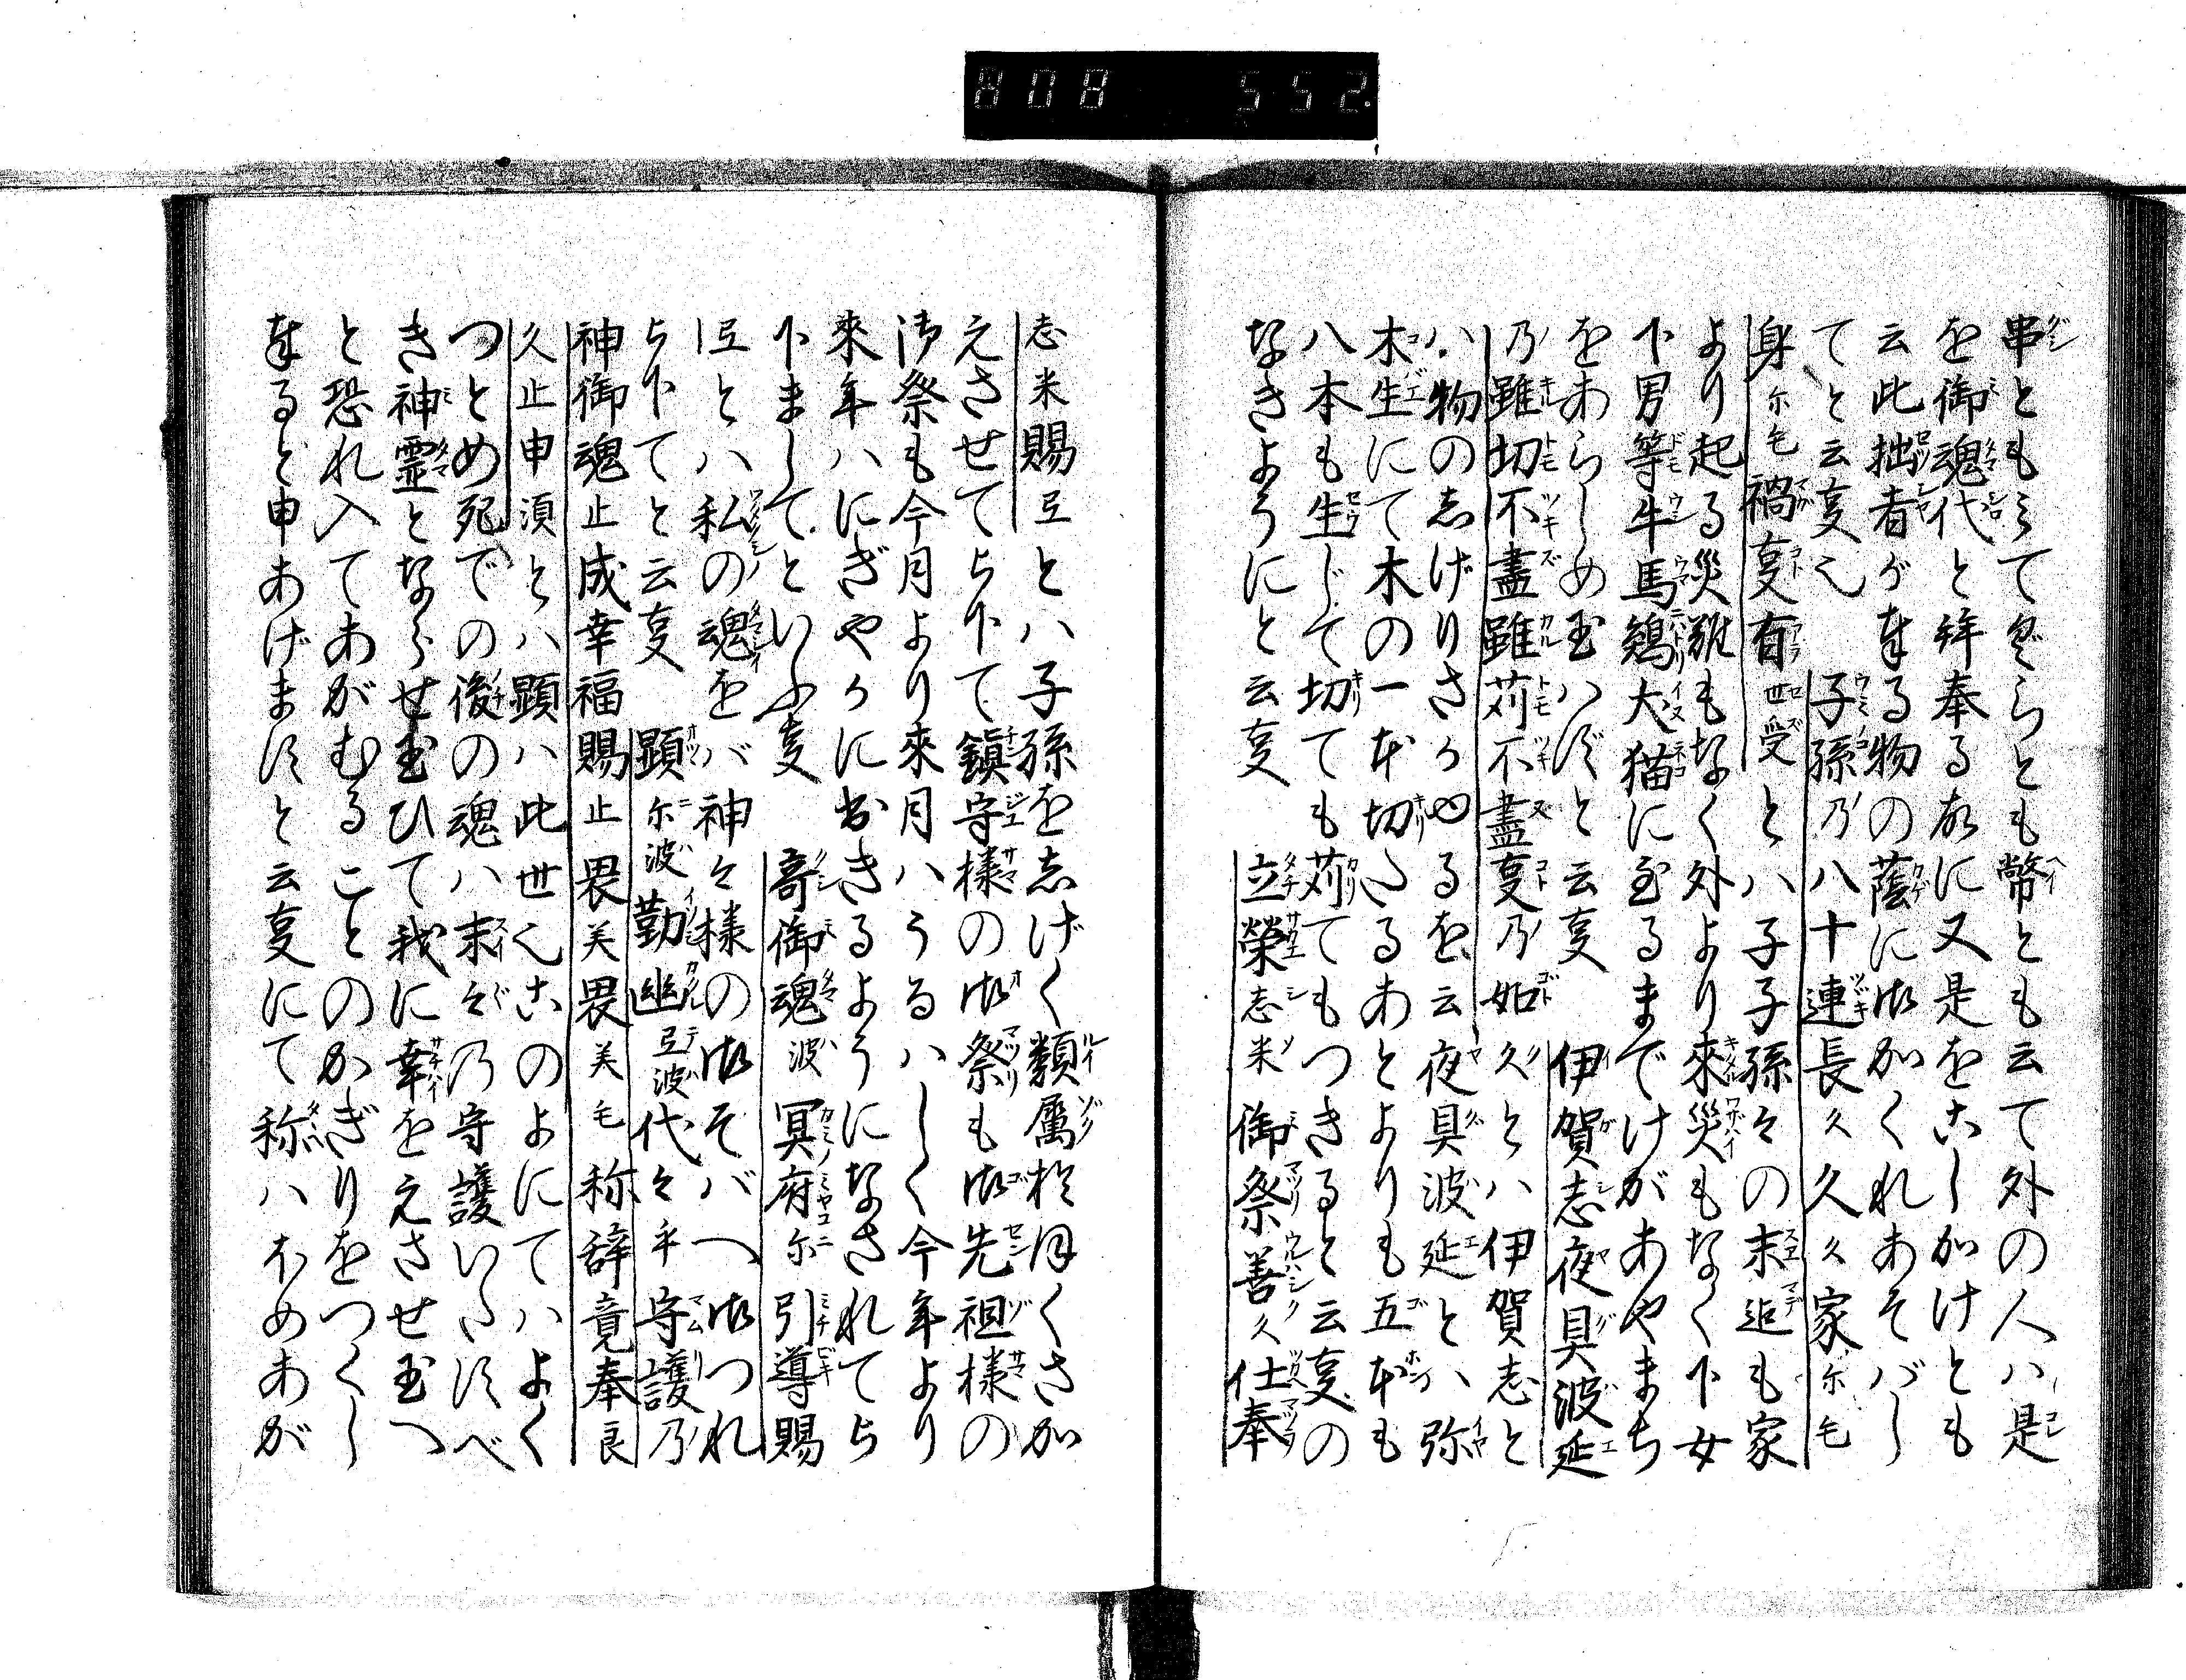 808 552
串ともミてぐらとも幣とも云て外の人ハ是
を御魂代と拜奉る故に又是をおしかけとも
云此拙者が奉る物の蔭に御かくれあそバし
てと云叓也 子孫乃八十連長久久久家尓毛
身尓毛禍叓有世受とハ子子孫々の末迠も家
より起る災難もなく外より來災もなく下女
下男等牛馬鶏犬猫に至るまでけがあやまち
をあらしめ玉ハずと云叓 伊賀志夜具波延
乃雖切不盡雖苅不盡叓乃如久とハ伊賀志と
ハ物のしげりさかゆるを云夜具波延とハ弥
木生にて木の一本切たるあとよりも五本も
八本も生じて切ても苅てもつきると云叓の
なきようにと云叓 立榮志米御祭善久仕奉
志米賜弖とハ子孫をしげく類属于ほくさか
えさせてと下て鎮守様の御祭も御先祖様の
御祭も今月より來月ハうるハしく今年より
來年ハにぎやかにおきるようになされてと
下ましてといふ叓 竒御魂波冥府尓引導賜
弖とハ私の魂をバ神々様の御そバへ御つれ
と下てと云叓 顕尓波勤幽弖波代々乎守護乃
神御魂止成幸福賜止畏美畏美毛称辞竟奉良
久止申須とハ顕ハ此世也このよにてハよく
つとめ死での後の魂ハ末々乃守護いたすべ
き神霊とならせ玉ひて我に幸をえさせ玉へ
と恐れ入てあがむることのかぎりをつくし
奉ると申あげますと云叓にて称ハほめあが